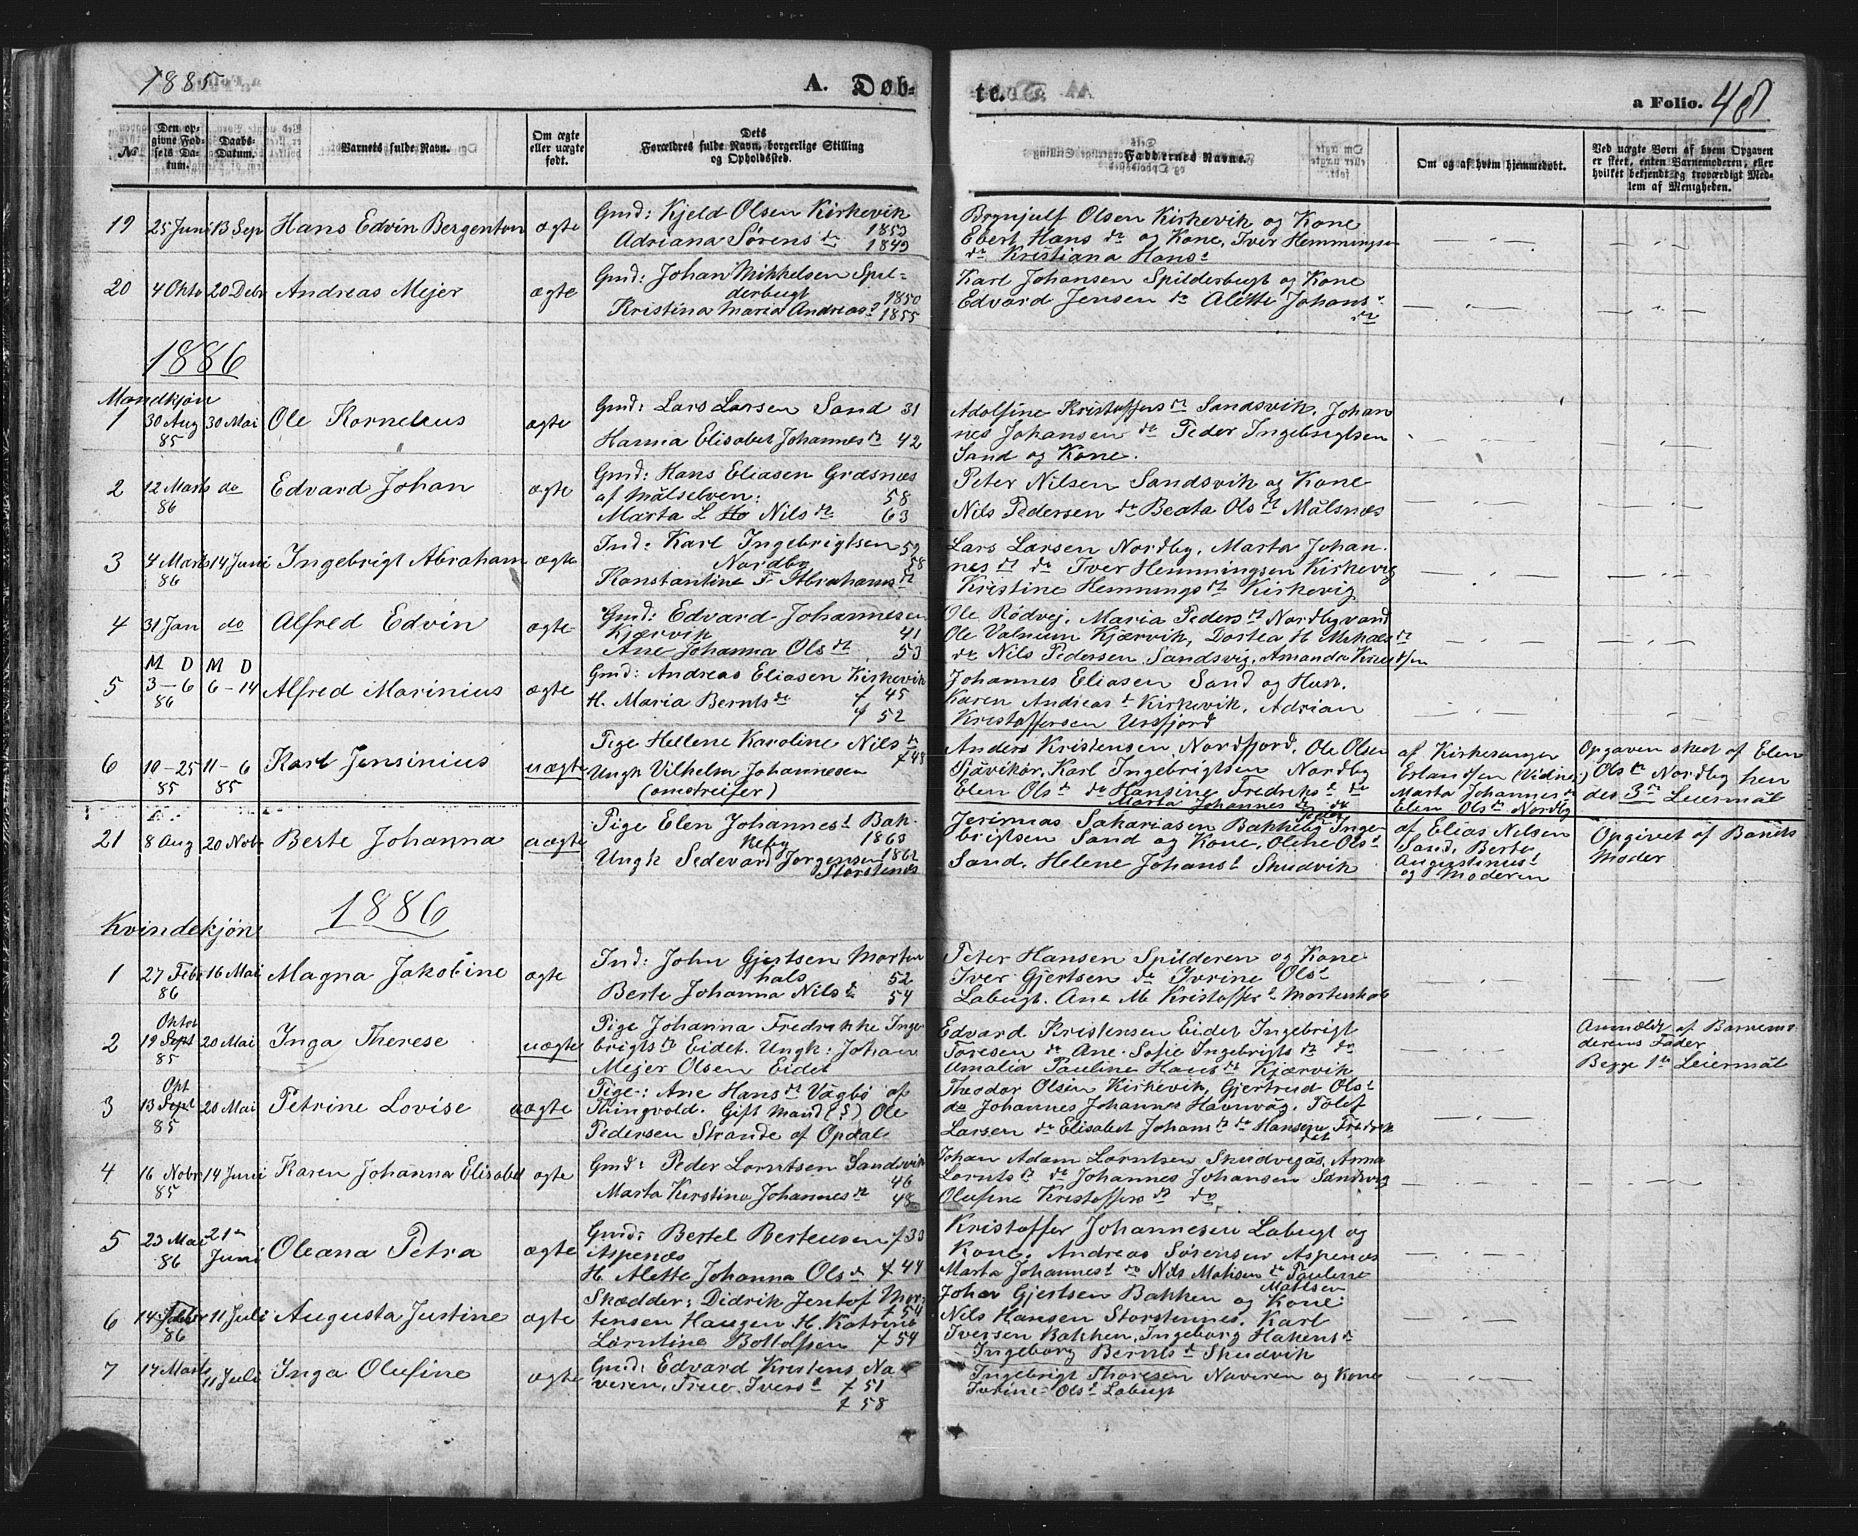 1885
A. Døb-
te.
a Folio. 48
No
Den op-
givne Fød-
sels Da-
tum.
Daabs-
Datum.
Barnets fulde Navn.
Om ægte
eller uægte
født.
Dets
Forældres fulde Navn, borgerlige Stilling
og Opholdssted.
Faddernes Navne.
Om og af hvem hjemmedøbt.
Ved uægte Børn af hvem Opgaven
er skeet, enten Barnemoderen, eller
hvilket bekjendt og troværdigt Med-
lem af Menigheden.
19 25 Juni 13 Sep Hans Edvin Bergenton ægte
Gmd: Kjeld Olsen Kirkevik 1853
Adriana Sørens dr 1849
Brynjulf Olsen Kirkevik og Kone
Ebert Hans do og Kone, Iver Hemmingsen
do Kristiana Hans d
20 4 Okto 20 Debr Andreas Mejer ægte
Gmd: Johan Mikkelsen Spil-
derbugt 1850
Kristina Maria Andreas d 1855
Karl Johansen Spilderbugt og Kone
Edvard Jensen do Alette Johans
dr
1886
Mandkjøn
1 30 Aug 85 30 Mai Ole Kornelius ægte
Gmd: Lars Larsen Sand 31
Hanna Elisabet Johannes dr 42
Adolfine Kristoffers dr Sandsvik, Johan
nes Johansen do Peder Ingebrigtsen
Sand og Kone.
2 12 Marts 86 do Edvard Johan ægte
Gmd: Hans Eliasen Græsnæs
af Målselven: 58
Marta L Ho Nils dr 63
Peter Nilsen Sandsvik og Kone
Nils Pedersen do Beata Ols dr Målsnæs
3 4 Marts 86 14 Juni Ingebrigt Abraham ægte
Ind: Karl Ingebrigtsen 52
Nordby 58
Konstantine F Abrahams dr
Lars Larsen Nordby, Marta Johan
nes dr do Iver Hemmingsen Kirkevig
Kristine Hemmings dr Kirkevig
4 31 Jan do Alfred Edvin ægte
Gmd: Edvard Johannesen
Kjærvik 41
Ane Johanna Ols dr 53
Ole Rødvej, Maria Peders dr Nordbyvand
Ole Valnum Kjærvik, Dortea H Mikaels dr
do Nils Pedersen Sandsvig, Amanda Knudsen
M D M D
5 3-6 86 6-14 Alfred Marinius ægte
Gmd: Andreas Eliasen Kirkevik
f 45
H. Maria Bernts dr f 52
Johannes Eliasen Sand og Hust.
Karen Andreas d Kirkevik, Adrian
Kristoffersen Ursfjord
6 10-25 85 11-6 85 Karl Jensinius uægte
Pige Hellene Karoline Nils dr
f 43
Ungk Vilhelm Johannesen
(omstreifer)
Anders Kristensen Nordfjord, Ole Olsen
Sjåvikør, Karl Ingebrigtsen Nordby
Elen Ols dr do Hansine Fredriks d do
Marta Johannes dr do
af Kirkesanger
Erlandsen (Vidner:)
Marta Johannes dr
Elen Ols dr Nordby
Opgaven skeet af Elen
Ols dr Nordby hen
des 3die Leiermål
21 8 Aug 20 Nobr Berte Johanna uægte
Pige Elen Johannes d Bak-
keby 1863
Ungk Sedevard Jørgensen 1862
Storstenæs
Jerimias Sakariasen Bakkeby, Peder Inge
brigtsen Sand og Kone, Olene Ols d
Sand. Helene Johans d Skudvik
af Elias Nilsen
Sand, Berte
Augustinus d
og Moderen
Opgivet af Barnets
Moder
1886
Kvindekjøn
1 27 Febr 86 16 Mai Magna Jakobine ægte
Ind: John Gjertsen Morten
hals 52
Berte Johanna Nils d 54
Peter Hansen Spilderen og Kone
Iver Gjertsen do Iverine Ols d
Labugt. Ane M Kristoffer d Mortenhals
2 Oktbr 19 Sept 85 20 Mai Inga Therese uægte
Pige Johanna Fredrikke Inge
brigts dr Eidet. Ungk: Johan
Mejer Olsen Eidet
Edvard Kristensen Eidet Ingebrigt
Toresen do Ane Sofie Ingebrigts dr do
Amalia Pauline Hans dr Kjærvik
Anmeldt af Barnemo
derens Fader
Begge 1te Leiermål
3 13 Sept 85 20 Mai Petrine Lovise uægte
Pige: Ane Hans dr Vågbø af
Thingvold. Gift Mand (?) Ole
Pedersen Strande af Opdal
Theodor Olsen Kirkevik, Gjertrud Ols d
do Johannes Johannes Havnvåg, Tolef
Larsen do Elisabet Johans dr do Hansine Fredrik
4 16 Nobr 85 14 Juni Karen Johanna Elisabet ægte
Gmd: Peder Lorntsen Sandsvik
46
Marta Kirstina Johannes dr 48
Johan Adam Lorntsen Skudvegås, Anna
Lornts d do Johannes Johansen Sandvig
Olufine Kristoffers dr do
5 23 Mai 86 21de Juni Oleana Petra ægte
Gmd: Bertel Bertensen f 33
Aspenæs
H. Alette Johanna Ols dr f 44
Kristoffer Johannesen Labugt og
Kone. Andreas Sørensen Aspenæs
Marta Johannes d do Nils Matisen do Pauline
Matisen
6 14 Febr 86 11 Juli Augusta Justine ægte
Skædder: Didrik Jentof Mor-
tensen Haugen H. Katrine f 54
Lorntine Bottolfsen f 54
Johan Gjertsen Bakken og Kone
Nils Hansen Storstennes, Karl
Iversen Bakken, Ingeborg Hakens dr
Ingeborg Bernts d Skudvik
7 17 Marts 11 Juli Inga Olufine ægte
Gmd: Edvard Kristens Na-
veren, Frue. Ivers d f 51
f 58
Ingebrigt Thoresen Naveren og Kone
Iverine Ols d Labugt